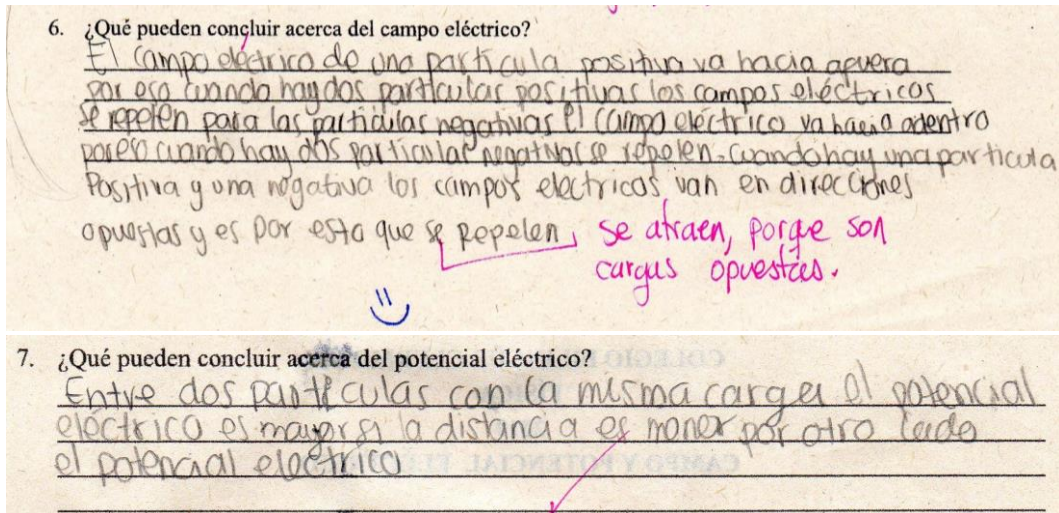 6. ¿Qué pueden concluir acerca del campo eléctrico?
El campo eléctrico de una partícula positiva va hacia afuera
por eso cuando hay dos particulas positivas los campos eléctricos
se repelen para las particulas negativas el campo eléctrico va hacia adentro
por eso cuando hay dos particulas negativas se repelen. Cuando hay una particula
Positiva y una negativa los campos electricos van en direcciones
opuestas y es por esto que se Repelen, se atraen, porqe son
cargas opuestas.
7. ¿Qué pueden concluir acerca del potencial eléctrico?
Entre dos particulas con la misma carga el potencial
eléctrico es mayor si la distancia es menor por otro lado
el potencial electrico